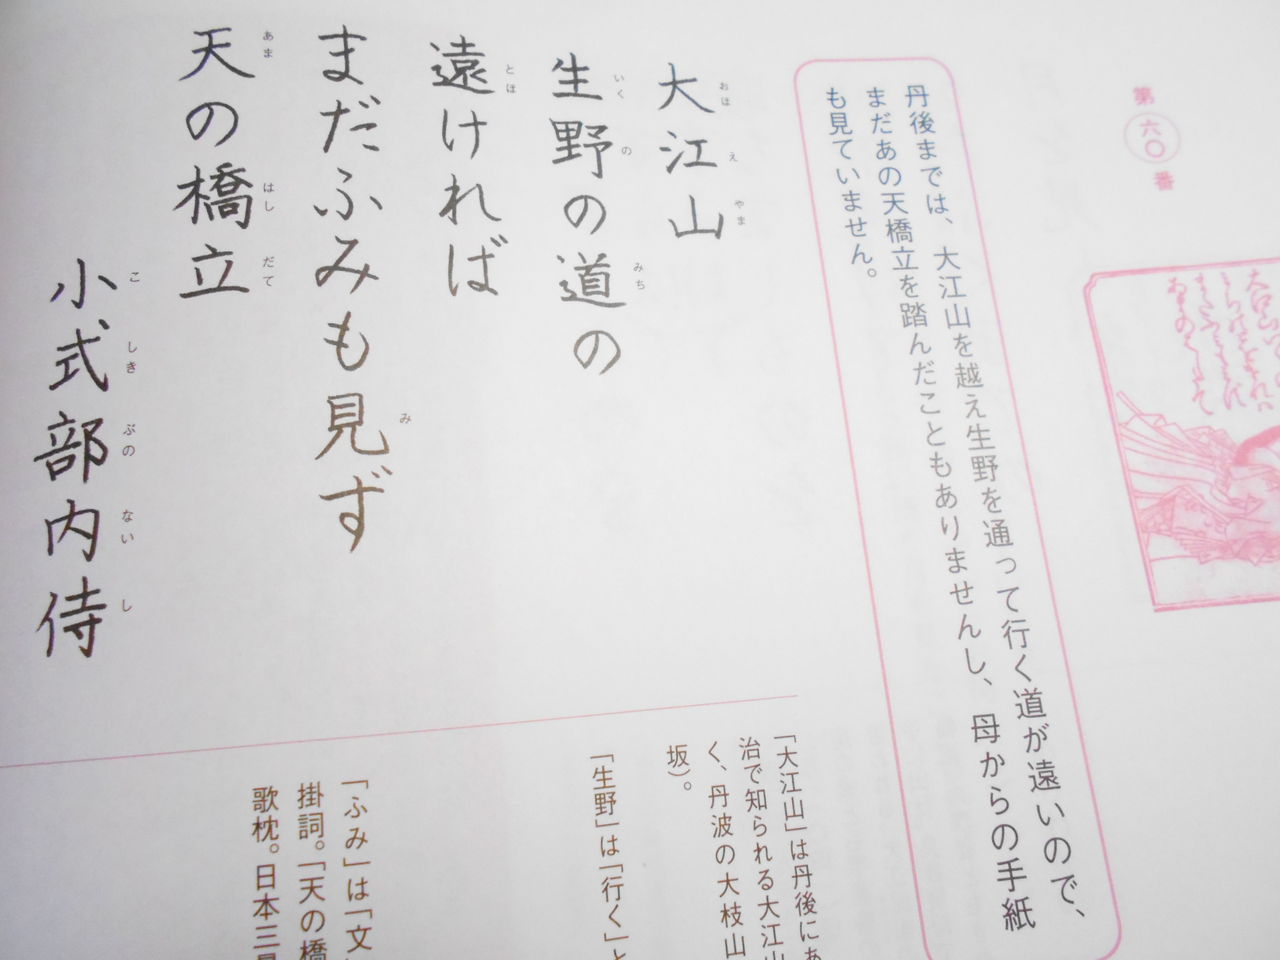 第六〇番
丹後までは、大江山を越え生野を通って行く道が遠いので、
まだあの天橋立を踏んだこともありませんし、母からの手紙
も見ていません。
大江山
おほえやま
生野の道の
いくのみち
遠ければ
とほ
まだふみも見ず
み
天の橋立
あまはしだて
小式部内侍
こしきぶのないし
「大江山」は丹後にあ
治で知られる大江山
く、丹波の大枝山
坂）。
「生野」は「行く」と
「ふみ」は「文」
掛詞。「天の橋
歌枕。日本三景